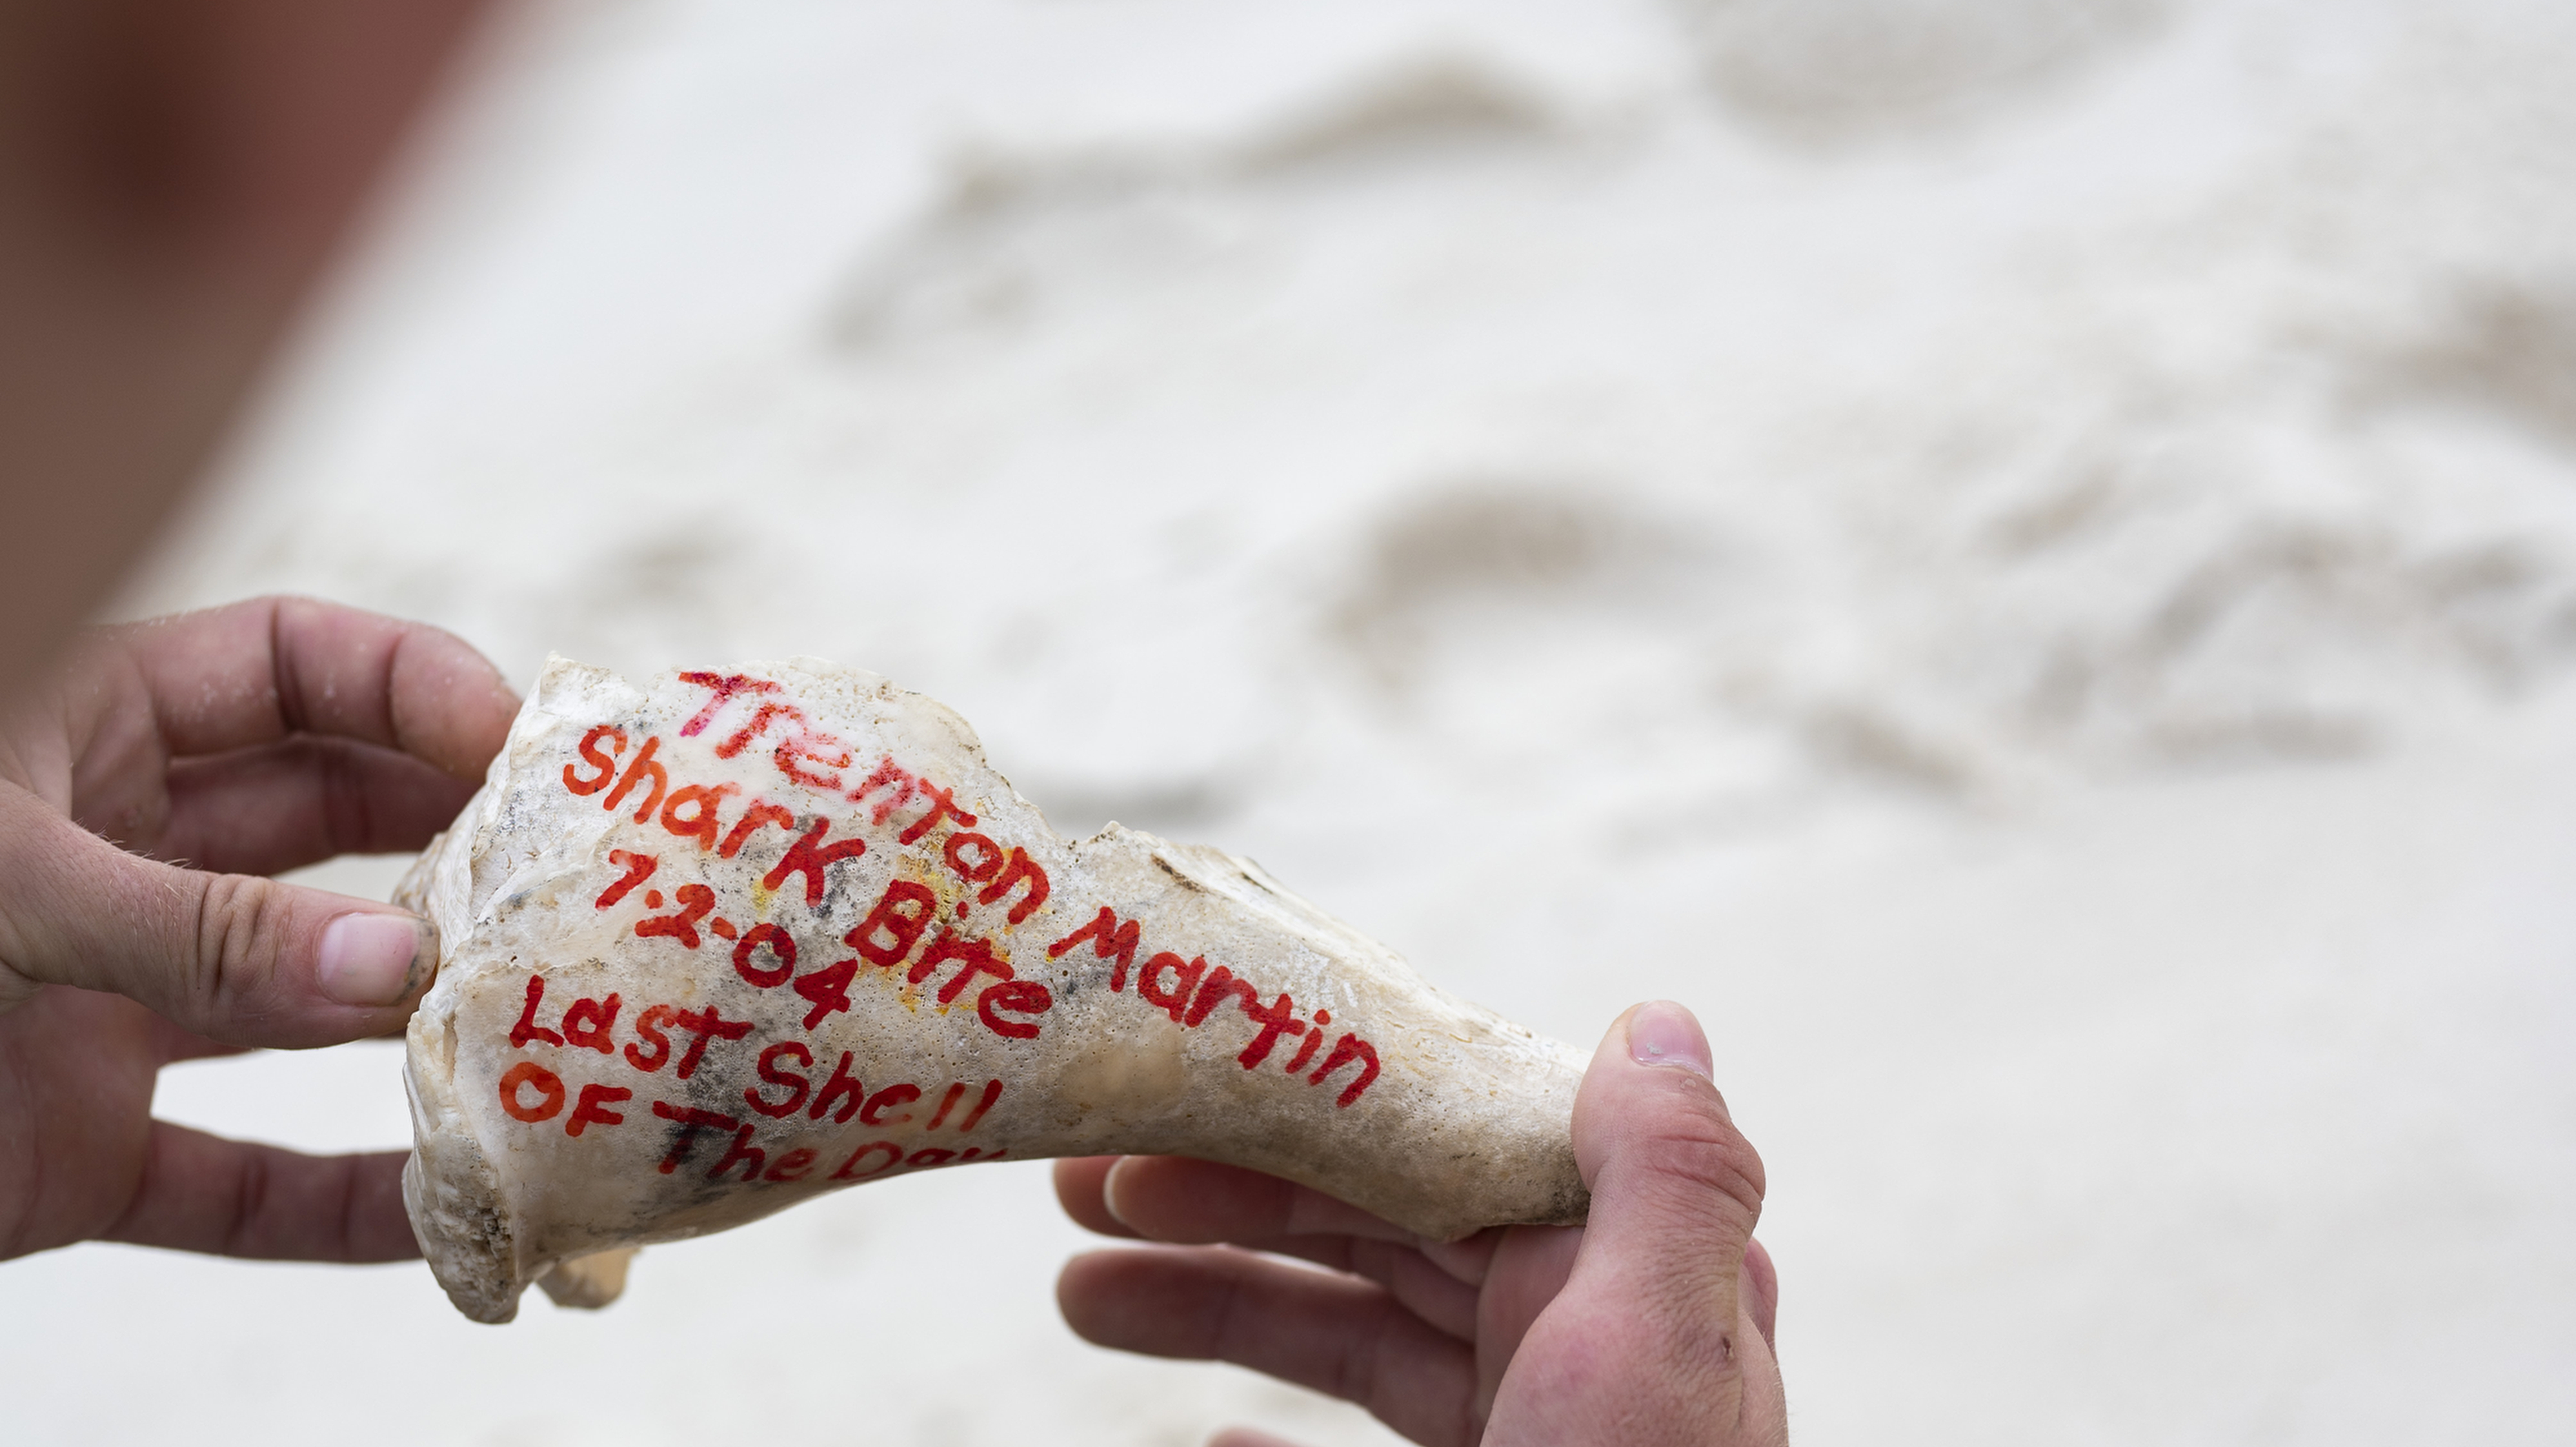 Trenton Martin
Shark Bite
7-2-04
Last Shell
OF The Day